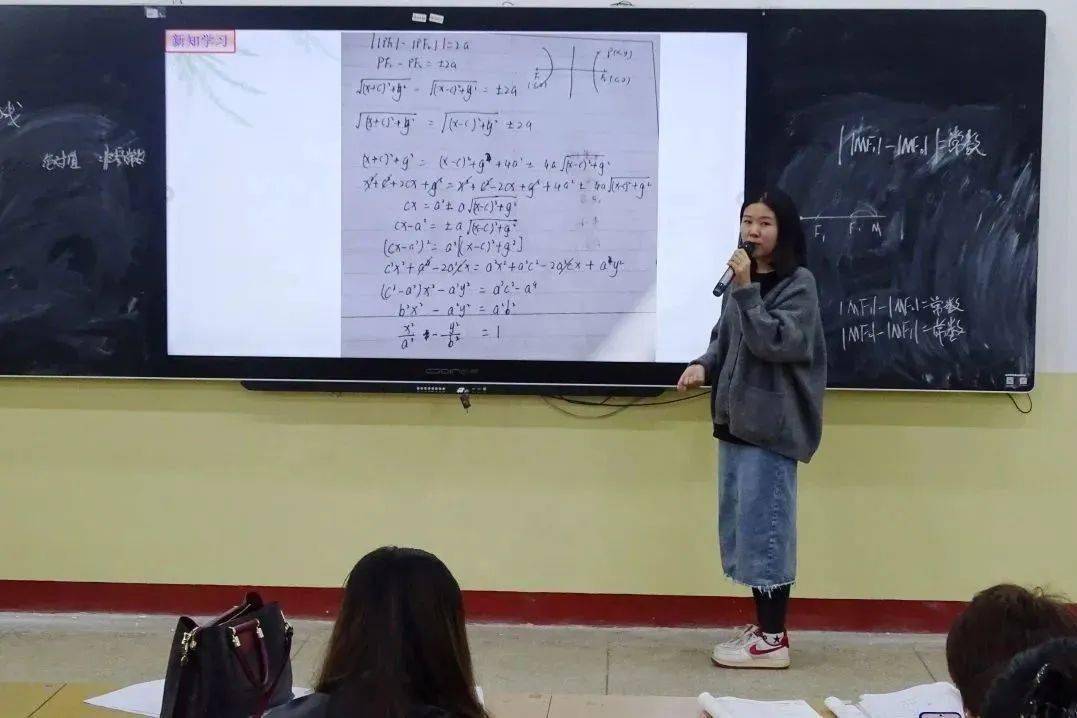 绝对值
新知学习
||PF₁| - |PF₂|| = 2a
PF₁ - PF₂ = ±2a
√(x+c)²+y² - √(x-c)²+y² = ±2a
√(x+c)²+y² = √(x-c)²+y² ±2a
(x+c)²+y² = (x-c)²+y² + 4a² ± 4a√(x-c)²+y²
x²+c²+2cx+y² = x²+c²-2cx+y²+4a² ± 4a√(x-c)²+y²
cx = a² ± a√(x-c)²+y²
cx-a² = ±a√(x-c)²+y²
(cx-a²)² = a²[(x-c)²+y²]
c²x²+a⁴-2a²cx = a²x²+a²c²-2a²cx+a²y²
(c²-a²)x²-a²y² = a²c²-a⁴
b²x² - a²y² = a²b²
x²/a² - y²/b² = 1
P(x,y)
F₁
F₂(c,0)
||MF₁|-|MF₂||=常数
F₁ F₂ M
|MF₁|-|MF₂|=常数
|MF₂|-|MF₁|=常数